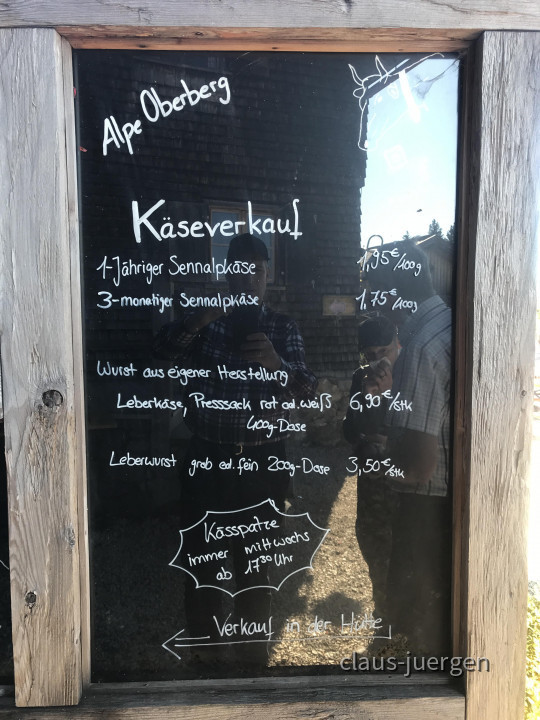 Alpe Oberberg
Käseverkauf
1-Jähriger Sennalpkäse 1,95€/100g
3-monatiger Sennalpkäse 1,75€/100g
Wurst aus eigener Herstellung
Leberkäse, Presssack rot od. weiß 6,90€/stk
400g-Dose
Leberwurst grob od. fein 200g-Dose 3,50€/stk
Kässpatze
immer mittwochs
ab 17³⁰ Uhr
Verkauf in der Hütte
claus-juergen